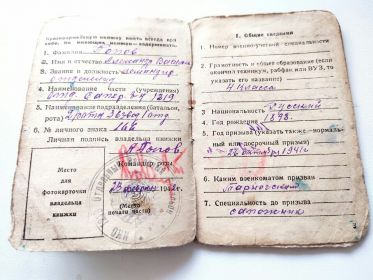 Красноармейскую книжку иметь всегда при
себе. Не имеющих книжек — задерживать.
1. Фамилия Попов
2. Имя и отчество Александр
3. Звание и должность командир
отделения
4. Наименование части (учреждения)
1319
5. Наименование подразделения (батальон,
рота) 2 рота 3 взвод 1 отд
6. № личного знака
Личная подпись владельца книжки
А Попов
Место
для
фотокарточки
владельца
книжки
Командир роты
1942 г.
(Место
печати части)
I. Общие сведения
1. Номер военно-учетной специальности
2. Грамотность и общее образование (если
окончил техникум, рабфак или ВУЗ, то
указать его название)
4 класса
3. Национальность Русский
4. Год рождения 1898.
5. Год призыва (указать также — нормаль-
ный или досрочный призыв)
октября 1941 г
6. Каким военкоматом призван
7. Специальность до призыва
сапожник
3